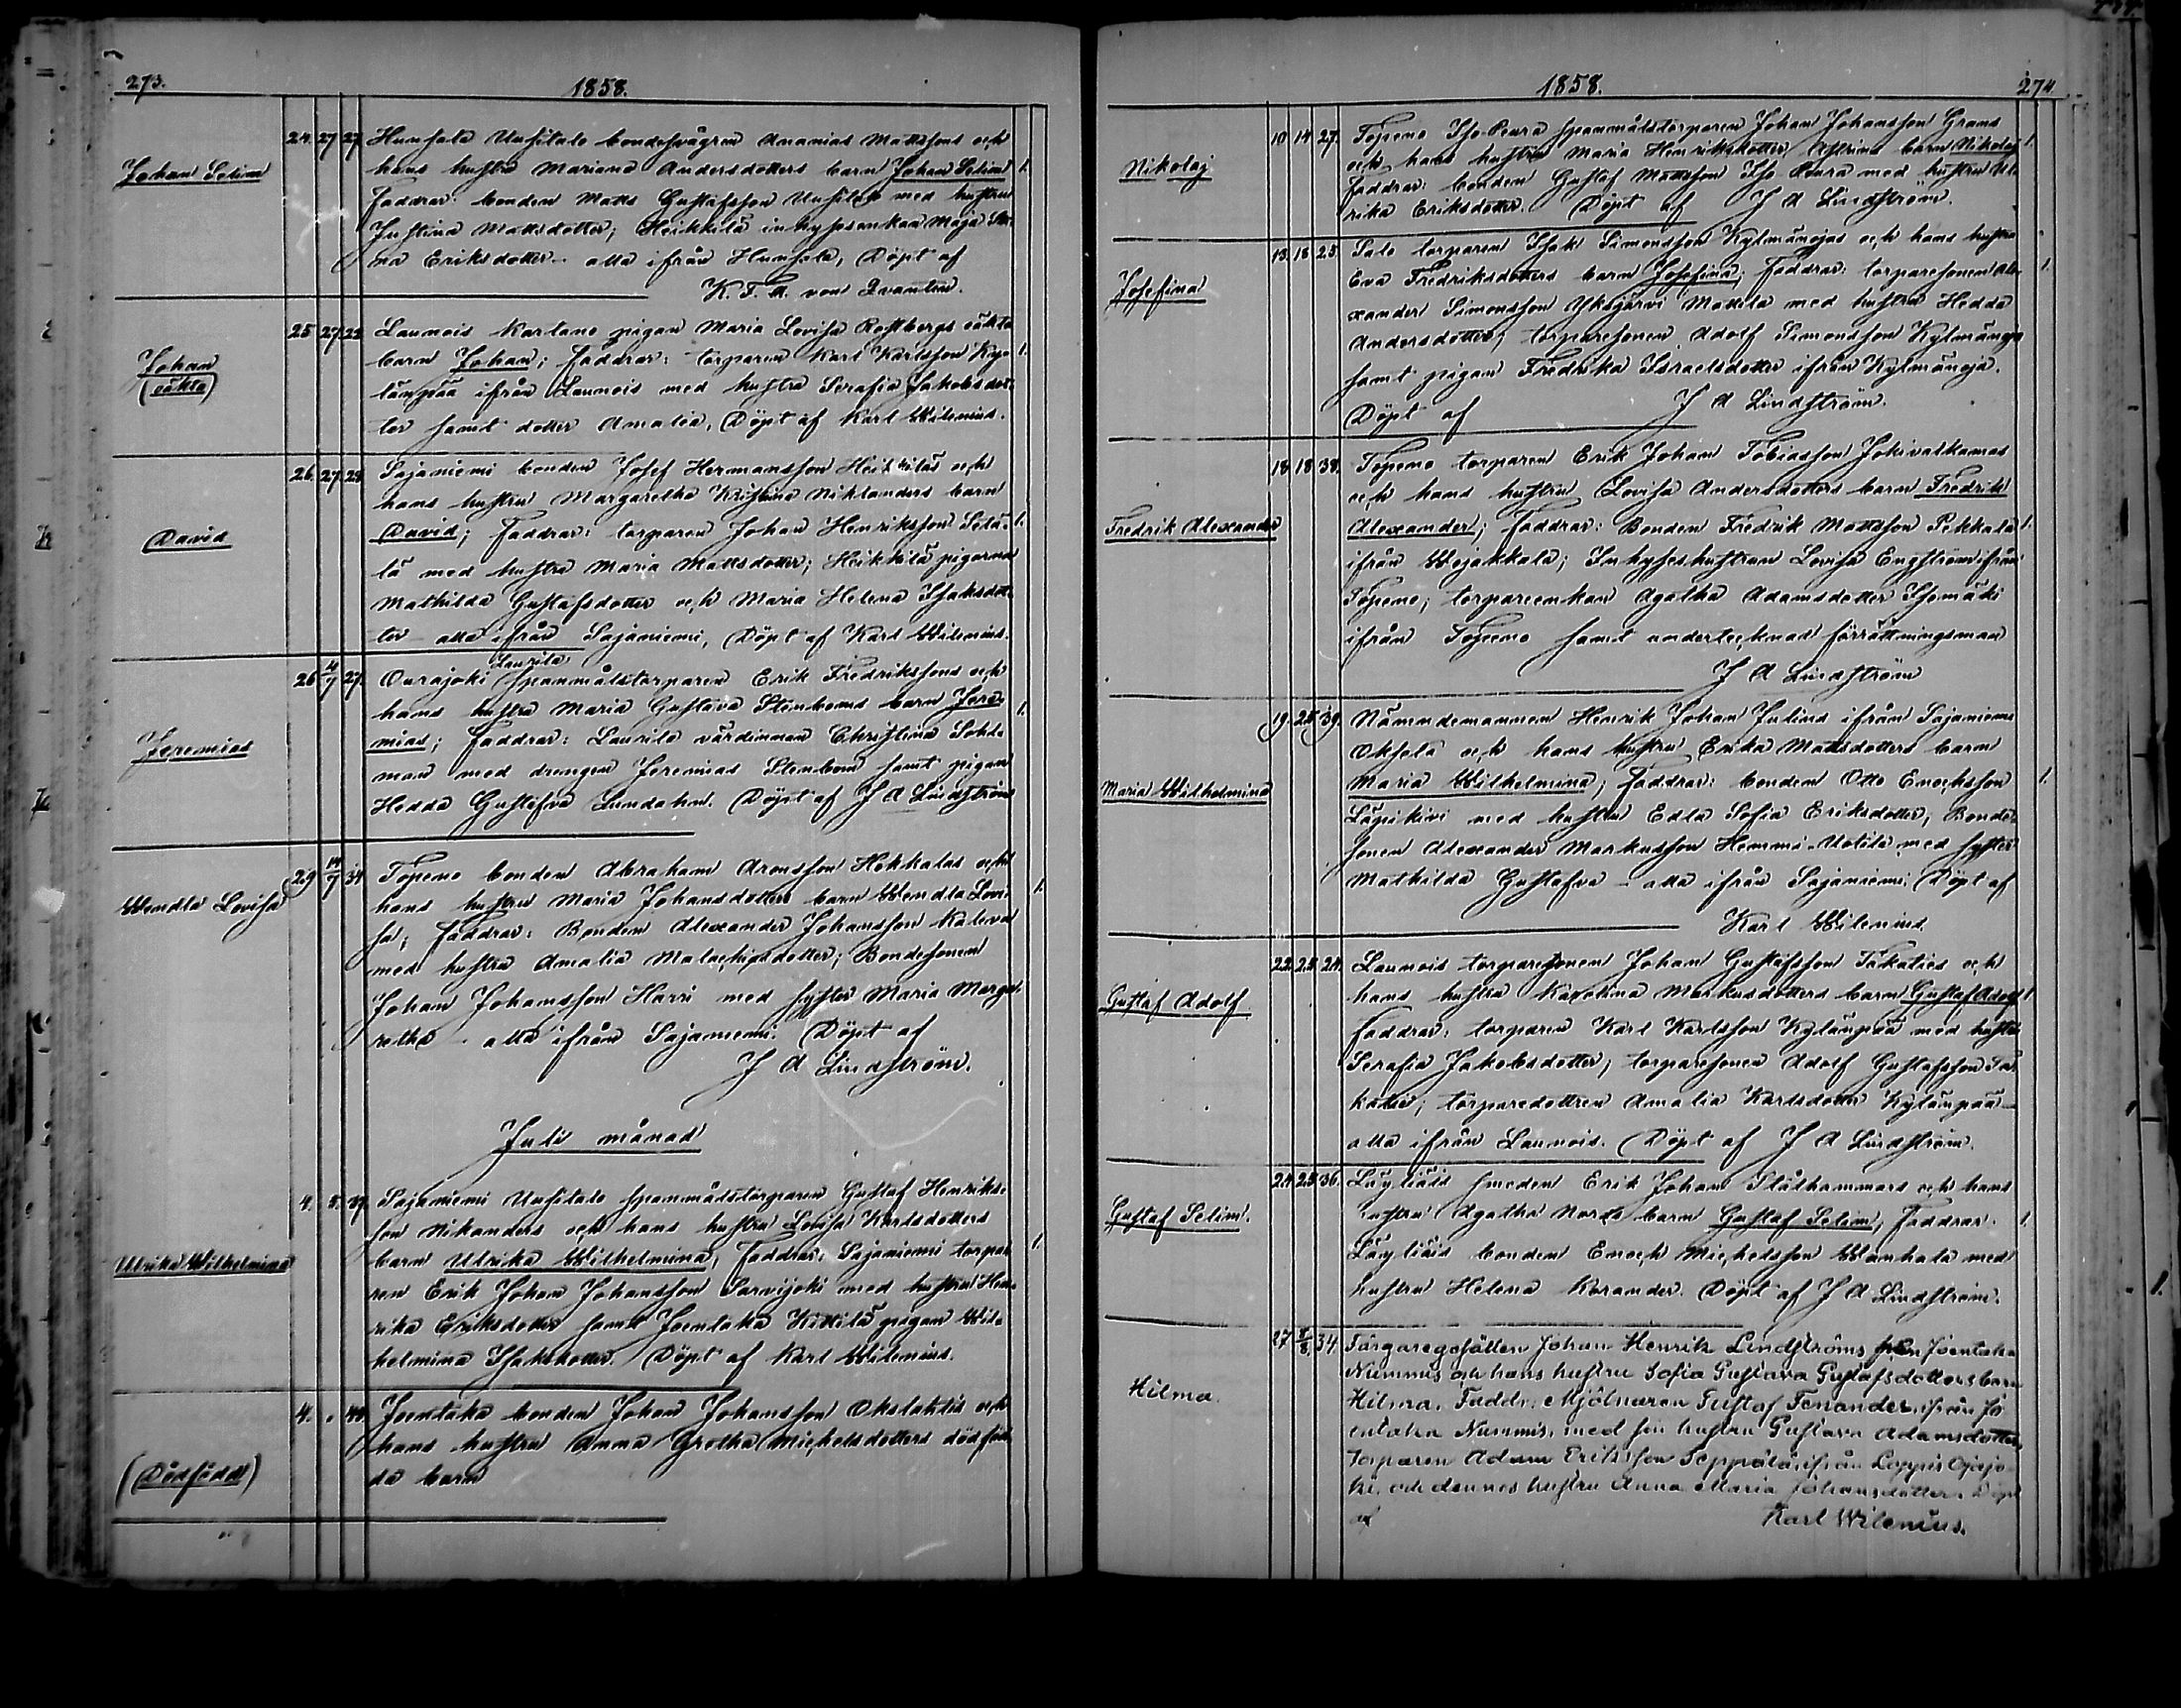 273.
1858.
Johan Selim
24. 27 27. Hunsala Uusitalo bondesvågern Ananias Mattssons och
hans hustru Mariana Andersdotters barn Johan Selim 1.
Faddrar: bonden Matts Gustafsson Uusitalo med hustru
Justina Mattsdotter; Heikkilä inhysesenkan Maja Sti-
na Eriksdotter - alla ifrån Hunsala, Döpt af
K. F. A. von Qvanten.
Johan
(oäkta)
25 27. 22 Launois Kartano pigan Maria Lovisa Rostbergs oäkta
barn Johan; faddrar: torparen Karl Karlsson Ky- 1.
länpää ifrån Launois med hustru Serafia Jakobsdot-
ter samt dotter Amalia, Döpt af Karl Wilenius.
David
26. 27. 29 Sajaniemi bonden Josef Hermansson Heikkiläs och
hans hustru Margaretha Kristina Niklanders barn
David; faddrar: torparen Johan Henriksson Setä- 1.
lä med hustru Maria Mattsdotter; Heikkilä pigorna
Mathilda Gustafsdotter och Maria Helena Isaksdot-
ter alla ifrån Sajaniemi, Döpt af Karl Wilenius.
Jeremias
26 4/7 27. Ourajoki Laurila spanmålstorparen Erik Fredrikssons och
hans hustru Maria Gustava Stenboms barn Jere- 1.
mias; faddrar: Laurila värdinnan Christina Sohl-
man med drengen Jeremias Stenbom samt pigan
Hedda Gustafva Lundahn. Döpt af J A Lindström
Wendla Lovisa
29 14/7 34 Topeno bonden Abraham Aronsson Hokkalas och
hans hustru Maria Johansdotters barn Wendla Lovi- 1.
sa; faddrar: Bonden Alexander Johansson Kaleva
med hustru Amalia Malachiasdotter; Bondesonen
Johan Johansson Harri med syster Maria Marga-
retha - alla ifrån Sajaniemi. Döpt af
J A Lindström.
Juli månad
Ulrika Wilhelmina
4. 5. 37. Sajaniemi Uusitalo spanmålstorparen Gustaf Henriks-
son Nikanders och hans hustru Lovisa Karlsdotters
barn Ulrika Wilhelmina, faddrar: Sajaniemi torpa- 1.
ren Erik Johan Johansson Sarvijoki med hustru Hen-
rika Eriksdotter samt Joentaka Kittilä pigan Wil-
helmina Isaksdotter. Döpt af Karl Wilenius.
(Dödfödde)
4. . 40. Joentaka bonden Johan Johansson Okslahtis och
hans hustru Anna Gretha Michelsdotters dödföd-
da barn
1858.
274
Nikolaj
10 14 27. Topeno Iso-Peura spanmålstorparen Johan Johansson Grans
och hans hustru Maria Henriksdotter barn Nikolaj 1.
faddrar: bonden Gustaf Mattsson Iso-Peura med hustru Ul-
rika Eriksdotter. Döpt af J A Lindström.
Josefina
13. 18 23. Salo torparen Isak Simonsson Kylmänojas och hans hustru
Eva Fredriksdotters barn Josefina; Faddrar: torparesonen Ale- 1.
xander Simonsson Yksjärvi Mattila med hustru Hedda
Andersdotter; torparesonen Adolf Simonsson Kylmänoja
samt pigan Fredrika Israelsdotter ifrån Kylmänoja.
Döpt af J A Lindström.
Fredrik Alexander
18 18 38. Topeno torparen Erik Johan Tobiasson Jokivalkamas
och hans hustru Lovisa Andersdotters barn Fredrik
Alexander; Faddrar: Bonden Fredrik Mattsson Pekkala 1.
ifrån Wojakkala; Inhyseshustrun Lovisa Engström ifrån
Topeno; torpareenkan Agatha Adamsdotter Isomäki
ifrån Topeno samt undertecknad förrättningsman
J A Lindström
Maria Wilhelmina
19. 25. 39. Nämndemannen Henrik Johan Julius ifrån Sajaniemi
Oksala och hans hustru Erika Mattsdotters barn
Maria Wilhelmina; Faddrar: bonden Otto Enochsson 1.
Läpikivi med hustru Edla Sofia Eriksdotter, Bonde-
sonen Alexander Markusson Hemmi-Uotila med syster
Mathilda Gustafva - alla ifrån Sajaniemi. Döpt af
Karl Wilenius.
Gustaf Adolf
22. 25. 24. Launois torparesonen Johan Gustafsson Takalios och
hans hustru Karolina Markusdotters barn Gustaf Adolf 1.
Faddrar: torparen Karl Karlsson Kylänpää med hustru
Serafia Jakobsdotter; torparesonen Adolf Gustafsson Ta-
kalio; torparedottren Amalia Karlsdotter Kylänpää -
alla ifrån Launois. Döpt af J A Lindström.
Gustaf Selim.
24. 25. 36. Läyliäis smeden Erik Johan Stålhammars och hans
hustru Agatha Nords barn Gustaf Selim; Faddrar. 1.
Läyliäis bonden Enoch Michelsson Wanhala med
hustru Helena Korander. Döpt af J A Lindström.
Hilma.
27 8/8. 34. Färgaregesällen Johan Henrik Lindströms från Joentaka
Nummis och hans hustru Sofia Gustava Gustafsdotters barn
Hilma. Faddr. Mjölnaren Gustaf Fenander, ifrån Jo-
entaka Nummis, med sin hustru Gustava Adamsdotter,
torparen Adam Eriksson Seppälä, ifrån Loppis Ojajo-
ki, och dennes hustru Anna Maria Johansdotter. Döpt
af Karl Wilenius.